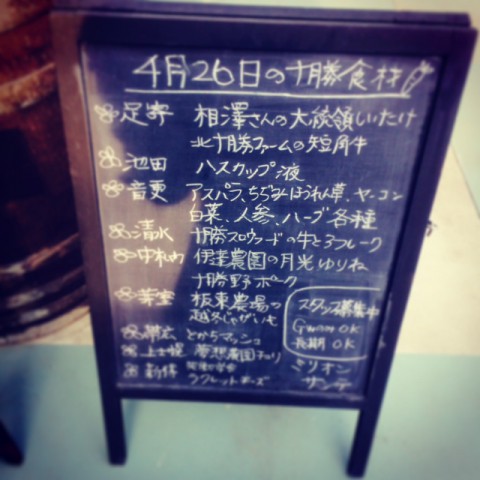 4月26日の十勝食材
足寄 相澤さんの大統領しいたけ
北十勝ファームの短角牛
池田 ハスカップ液
音更 アスパラ、ちぢみほうれん草、ヤーコン
白菜、人参、ハーブ各種
清水 十勝スロウフードの牛とろフレーク
中札内 伊達農園の月光ゆりね
十勝野ポーク
芽室 坂東農場の
越冬じゃがいも
スタッフ募集中
GWのみOK
長期OK
帯広 とかちマッシュ
上士幌
新得
ラクレットチーズ
ミリオン
サンテ